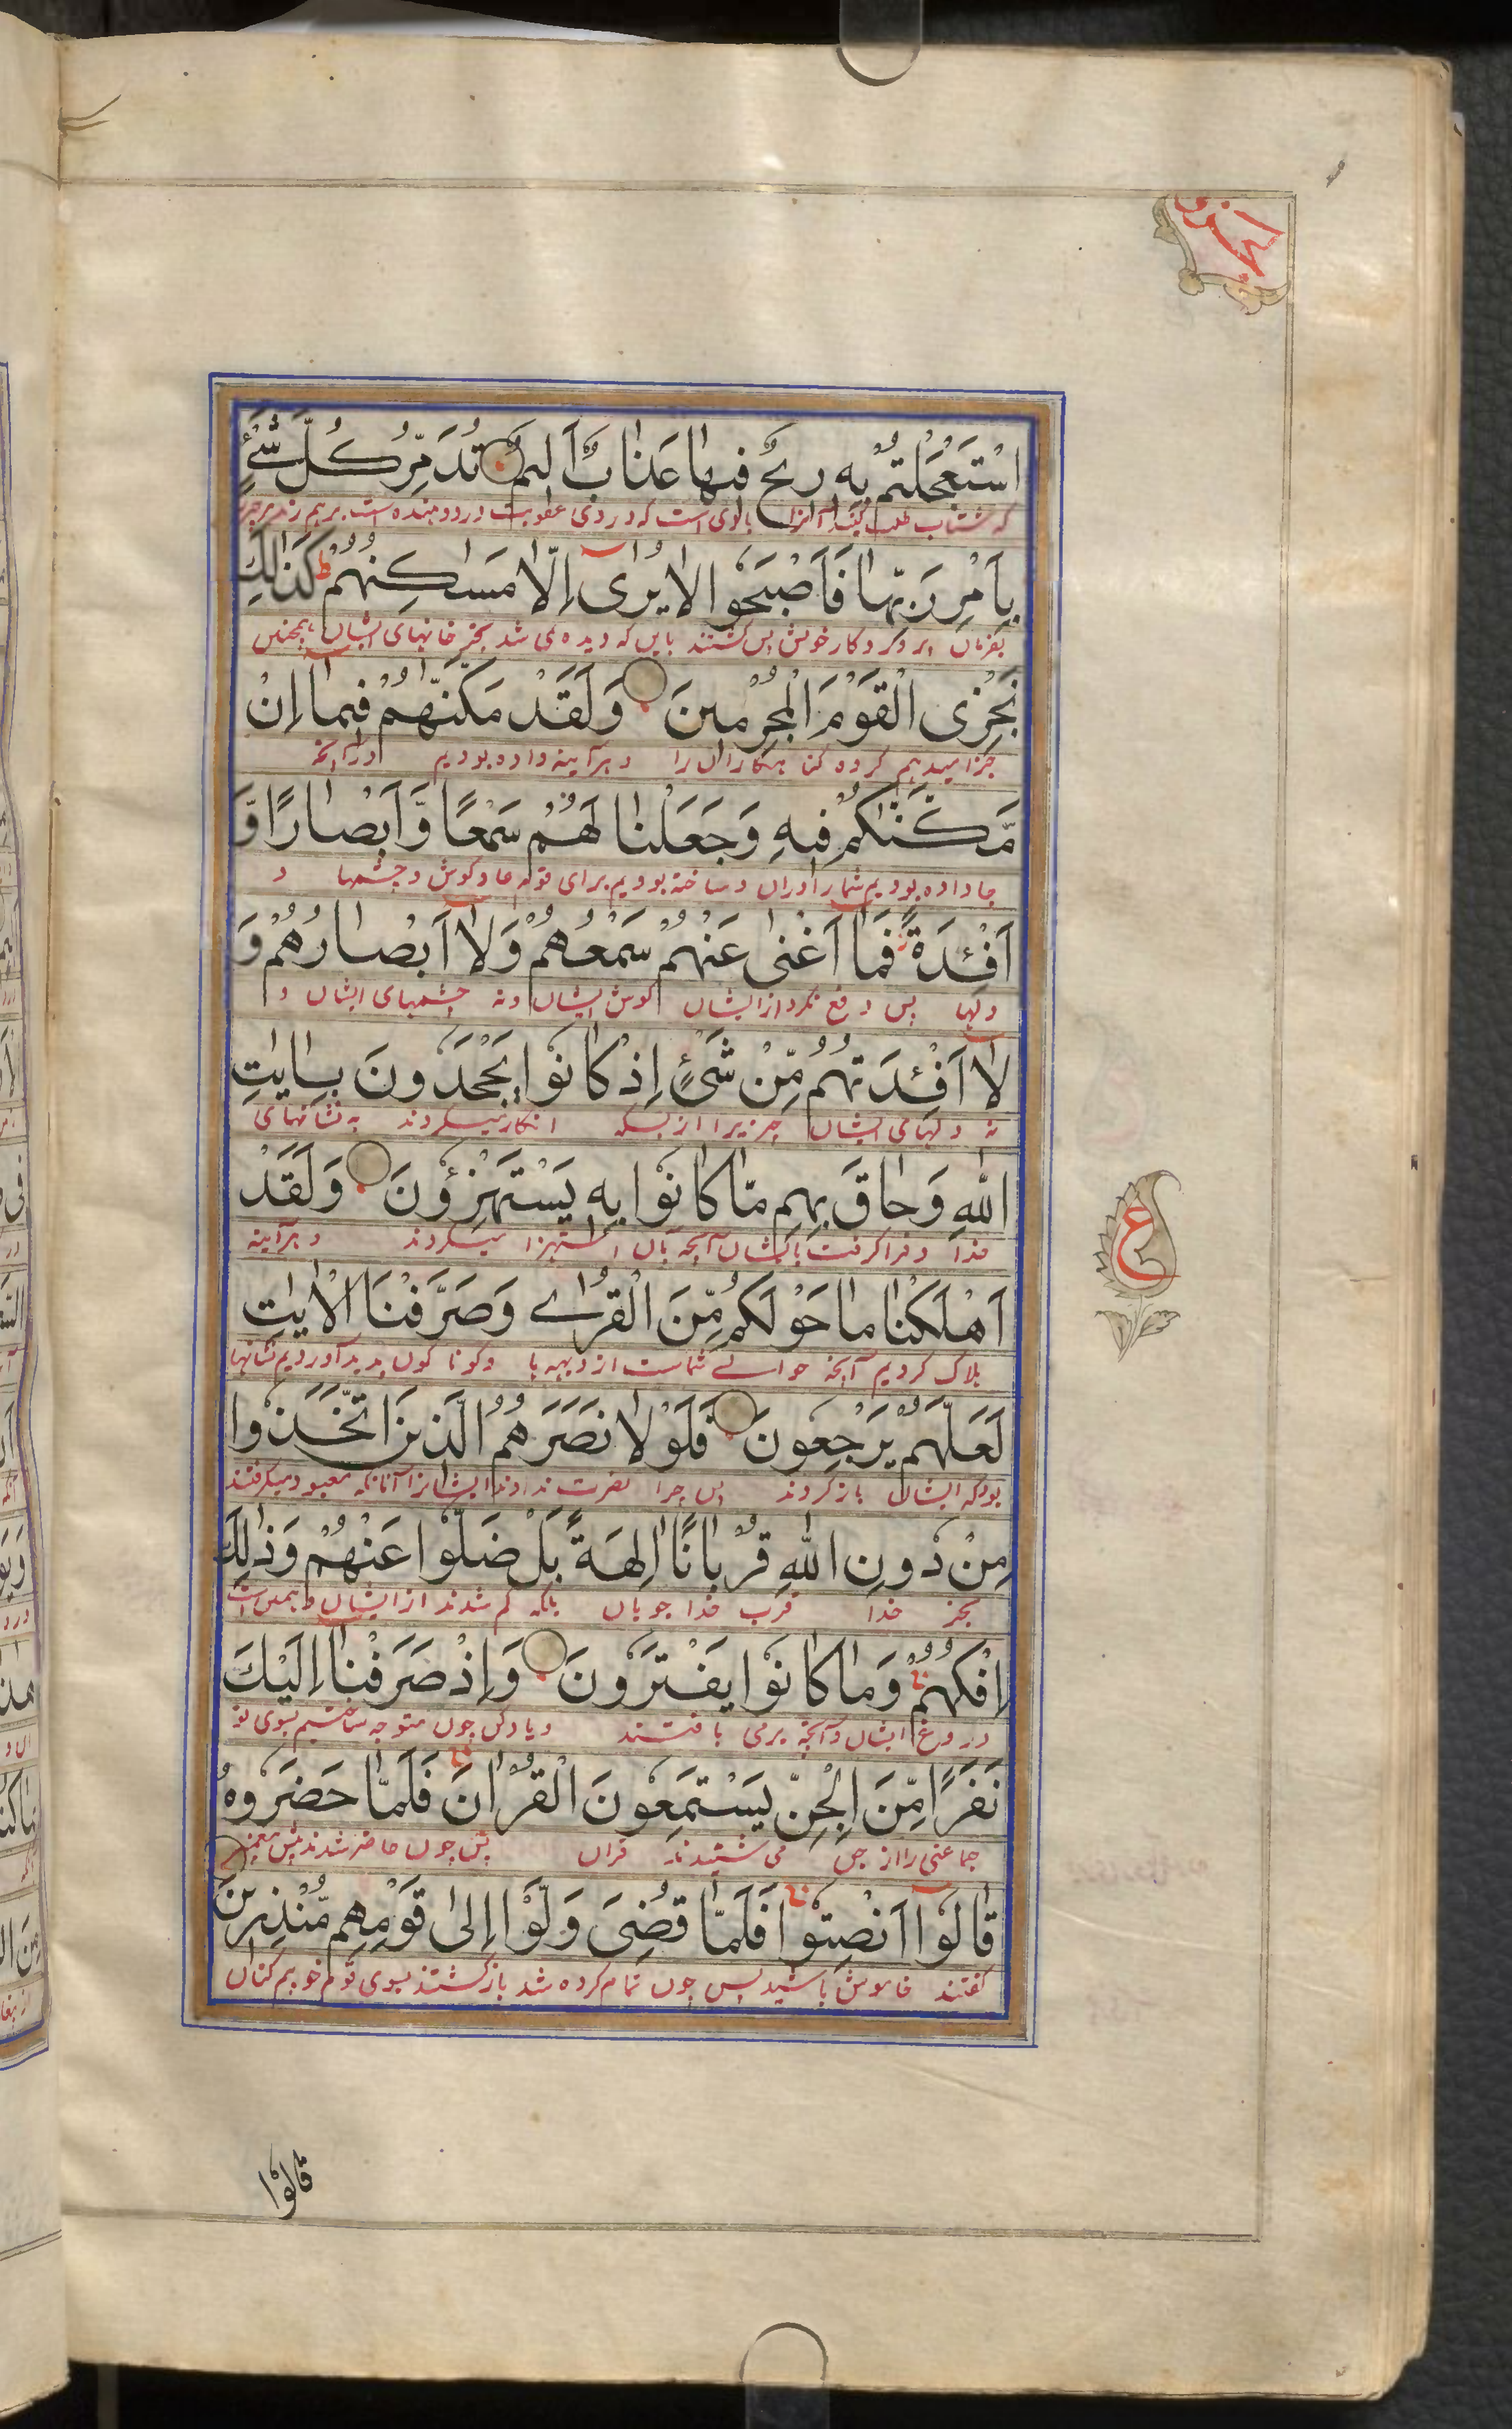 اسْتَعْجَلْتُمْ بِهٖ رِيْحٌ فِيْهَا عَذَابٌ اَلِيْمٌ تُدَمِّرُ كُلَّ شَيْءٍ
بِاَمْرِ رَبِّهَا فَاَصْبَحُوْا لَا يُرٰٓى اِلَّا مَسٰكِنُهُمْ ط كَذٰلِكَ
بفرمان پروردکار خویش پس کشتند باین که دیده نمی شد بجز خانهای ایشان همچنین
نَجْزِى الْقَوْمَ الْمُجْرِمِيْنَ وَلَقَدْ مَكَّنّٰهُمْ فِيْمَآ اِنْ
جزا میدهیم کروه کنا هکاران را و هر آینه داده بودیم در آنچه
مَّكَّنّٰكُمْ فِيْهِ وَجَعَلْنَا لَهُمْ سَمْعًا وَّاَبْصَارًا وَّ
جا داده بودیم شما را دران و ساخته بودیم برای قوم عاد کوش و چشمها و
اَفْئِدَةً ز فَمَآ اَغْنٰى عَنْهُمْ سَمْعُهُمْ وَلَآ اَبْصَارُهُمْ وَ
دلها پس دفع نکرد از ایشان کوش ایشان و نه چشمهای ایشان و
لَآ اَفْئِدَتُهُمْ مِّنْ شَيْءٍ اِذْ كَانُوْا يَجْحَدُوْنَ بِاٰيٰتِ
نه دلهای ایشان چیزیرا از بسکه انکار میکردند به نشانهای
اللّٰهِ وَحَاقَ بِهِمْ مَّا كَانُوْا بِهٖ يَسْتَهْزِءُوْنَ وَلَقَدْ
خدا و فرا کرفت بایشان آنچه بآن استهزا میکردند و هر آینه
اَهْلَكْنَا مَا حَوْلَكُمْ مِّنَ الْقُرٰى وَصَرَّفْنَا الْاٰيٰتِ
هلاک کردیم آنچه حوالے شماست از دیهه ها و کونا کون پدید آوردیم نشانها
لَعَلَّهُمْ يَرْجِعُوْنَ فَلَوْلَا نَصَرَهُمُ الَّذِيْنَ اتَّخَذُوْا
بود که ایشان باز کردند پس چرا نصرت ندادند ایشانرا آنانکه معبود میکرفتند
مِنْ دُوْنِ اللّٰهِ قُرْبَانًا اٰلِهَةً بَلْ ضَلُّوْا عَنْهُمْ وَذٰلِكَ
بجز خدا قرب خدا جویان بلکه کم شدند از ایشان و همین است
اِفْكُهُمْ وَمَا كَانُوْا يَفْتَرُوْنَ وَاِذْ صَرَفْنَآ اِلَيْكَ
دروغ ایشان و آنچه بر می بافتند و یاد کن چون متوجه ساختیم بسوی تو
نَفَرًا مِّنَ الْجِنِّ يَسْتَمِعُوْنَ الْقُرْاٰنَ فَلَمَّا حَضَرُوْهُ
جماعتی را از جن می شنیدند قران پس چون حاضر شدند
قَالُوْٓا اَنْصِتُوْا فَلَمَّا قُضِىَ وَلَّوْا اِلٰى قَوْمِهِمْ مُّنْذِرِيْنَ
کفتند خاموش باشید پس چون تمام کرده شد باز کشتند بسوی قوم خود بیم کنان
ع
قالوا